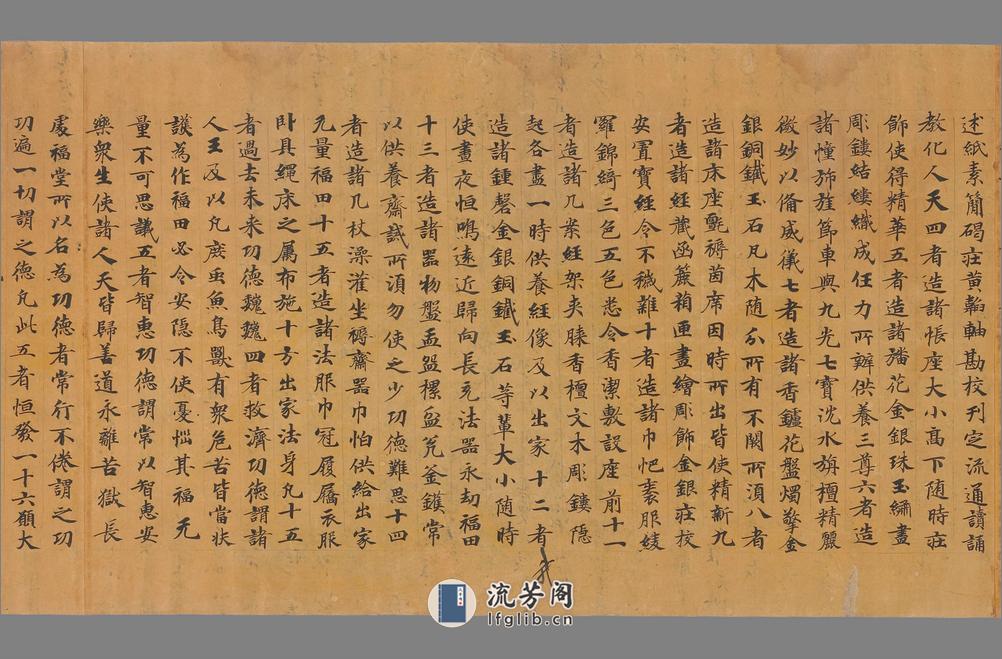 述紙素簡碣莊黃韜軸勘校刊定流通讀誦
教化人天四者造諸帳座大小高下随時莊
飾使得精華五者造諸旛花金銀珠玉繡畫
彫鏤結縷織成任力所辦供養三尊六者造
諸幢旆旌節車輿九光七寶沈水旃檀精麗
微妙以俻威儀七者造諸香鑪花盤燭檠金
銀銅鐵玉石凡木随分所有不闕所湏八者
造諸床座氈褥茵席因時所出皆使精新九
者造諸經藏函簏箱匣畫繪彫飾金銀莊校
安置寶經令不穢雜十者造諸巾帊裹服綾
羅錦綺三色五色悉令香潔敷設座前十一
者造諸几案經架夾膝香檀文木彫鏤隠
起各盡一時供養經像及以出家十二者
造諸鍾磬金銀銅鐵玉石等輩大小随時
使晝夜恒鳴遠近歸向長充法器永劫福田
十三者造諸器物盤盂盌樏盆瓮釜鑊常
以供養齋試所湏勿使乏少功德難思十四
者造諸几杖澡灌坐褥齋器巾帕供給出家
无量福田十五者造諸法服巾冠履屩衣服
卧具繩床之属布施十方出家法身凡十五
者過去未来功德巍巍四者救濟功德謂諸
人王及以凡庻虫魚鳥獸有衆危苦皆當扶
護為作福田必令安隠不使憂惱其福无
量不可思議五者智惠功德謂常以智惠安
樂衆生使諸人天皆歸善道永離苦獄長
處福堂所以名為功德者常行不倦謂之功
功遍一切謂之德凡此五者恒發一十六願大
流芳阁
lfglib.cn